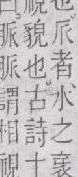 也𠂢者水之衺
覛貌也古詩十
脈脈謂相視